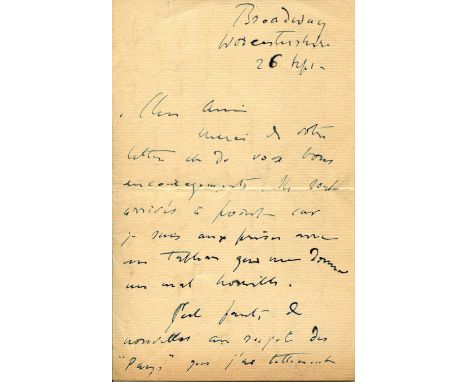 Broadway
Worcestershire
26 Sept.
Cher Ami
Merci de votre
lettre et de vos bons
encouragements. Ils sont
arrivés à point car
je suis aux prises avec
un Tableau qui me donne
un mal horrible.
faute de
nouvelles au sujet des
"Pays" que j'ai tellement